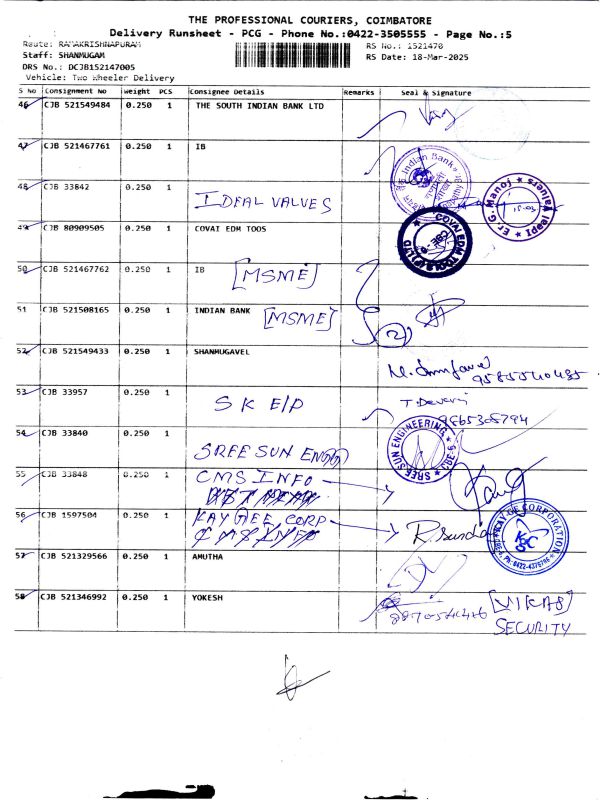 THE PROFESSIONAL COURIERS, COIMBATORE
Delivery Runsheet - PCG - Phone No.:0422-3505555 - Page No.:5
Route: RAMAKRISHNAPURAM
RS No.: 1521470
Staff: SHANMUGAM
RS Date: 18-Mar-2025
DRS No.: DCJB152147005
Vehicle: Two Wheeler Delivery
S No Consignment No Weight PCS Consignee Details Remarks Seal & Signature
46 CJB 521549484 0.250 1 THE SOUTH INDIAN BANK LTD
47 CJB 521467761 0.250 1 IB
Indian Bank
48 CJB 33842 0.250 1
IDEAL VALVES
Er.G.Manoj
49 CJB 80909505 0.250 1 COVAI EDM TOOS
50 CJB 521467762 0.250 1 IB
[MSME]
51 CJB 521508165 0.250 1 INDIAN BANK
[MSME]
52 CJB 521549433 0.250 1 SHANMUGAVEL
53 CJB 33957 0.250 1
S K E/P
9865308794
54 CJB 33840 0.250 1
SREE SUN ENGG
SREE SUN ENGINEERING CBE-6
55 CJB 33848 0.250 1
CMS INFO
56 CJB 1597504 0.250 1
KAY GEE CORP
57 CJB 521329566 0.250 1 AMUTHA
58 CJB 521346992 0.250 1 YOKESH
[VIKAS]
SECURITY